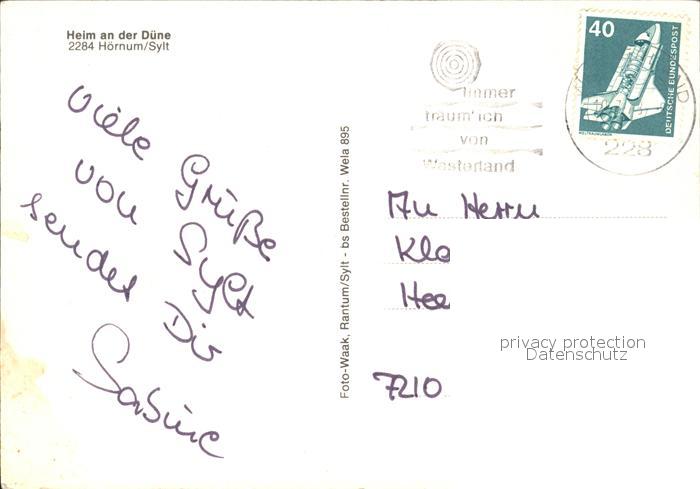 Heim an der Düne
2284 Hörnum/Sylt
Viele Grüße
von Sylt
sendet Dir
Sabine
Foto-Waak, Rantum/Sylt - bs Bestellnr. Wela 895
Immer
träum' ich
von
Westerland
40
DEUTSCHE BUNDESPOST
WELTRAUMLABOR
228
An Herrn
Kla
Hee
7210
privacy protection
Datenschutz